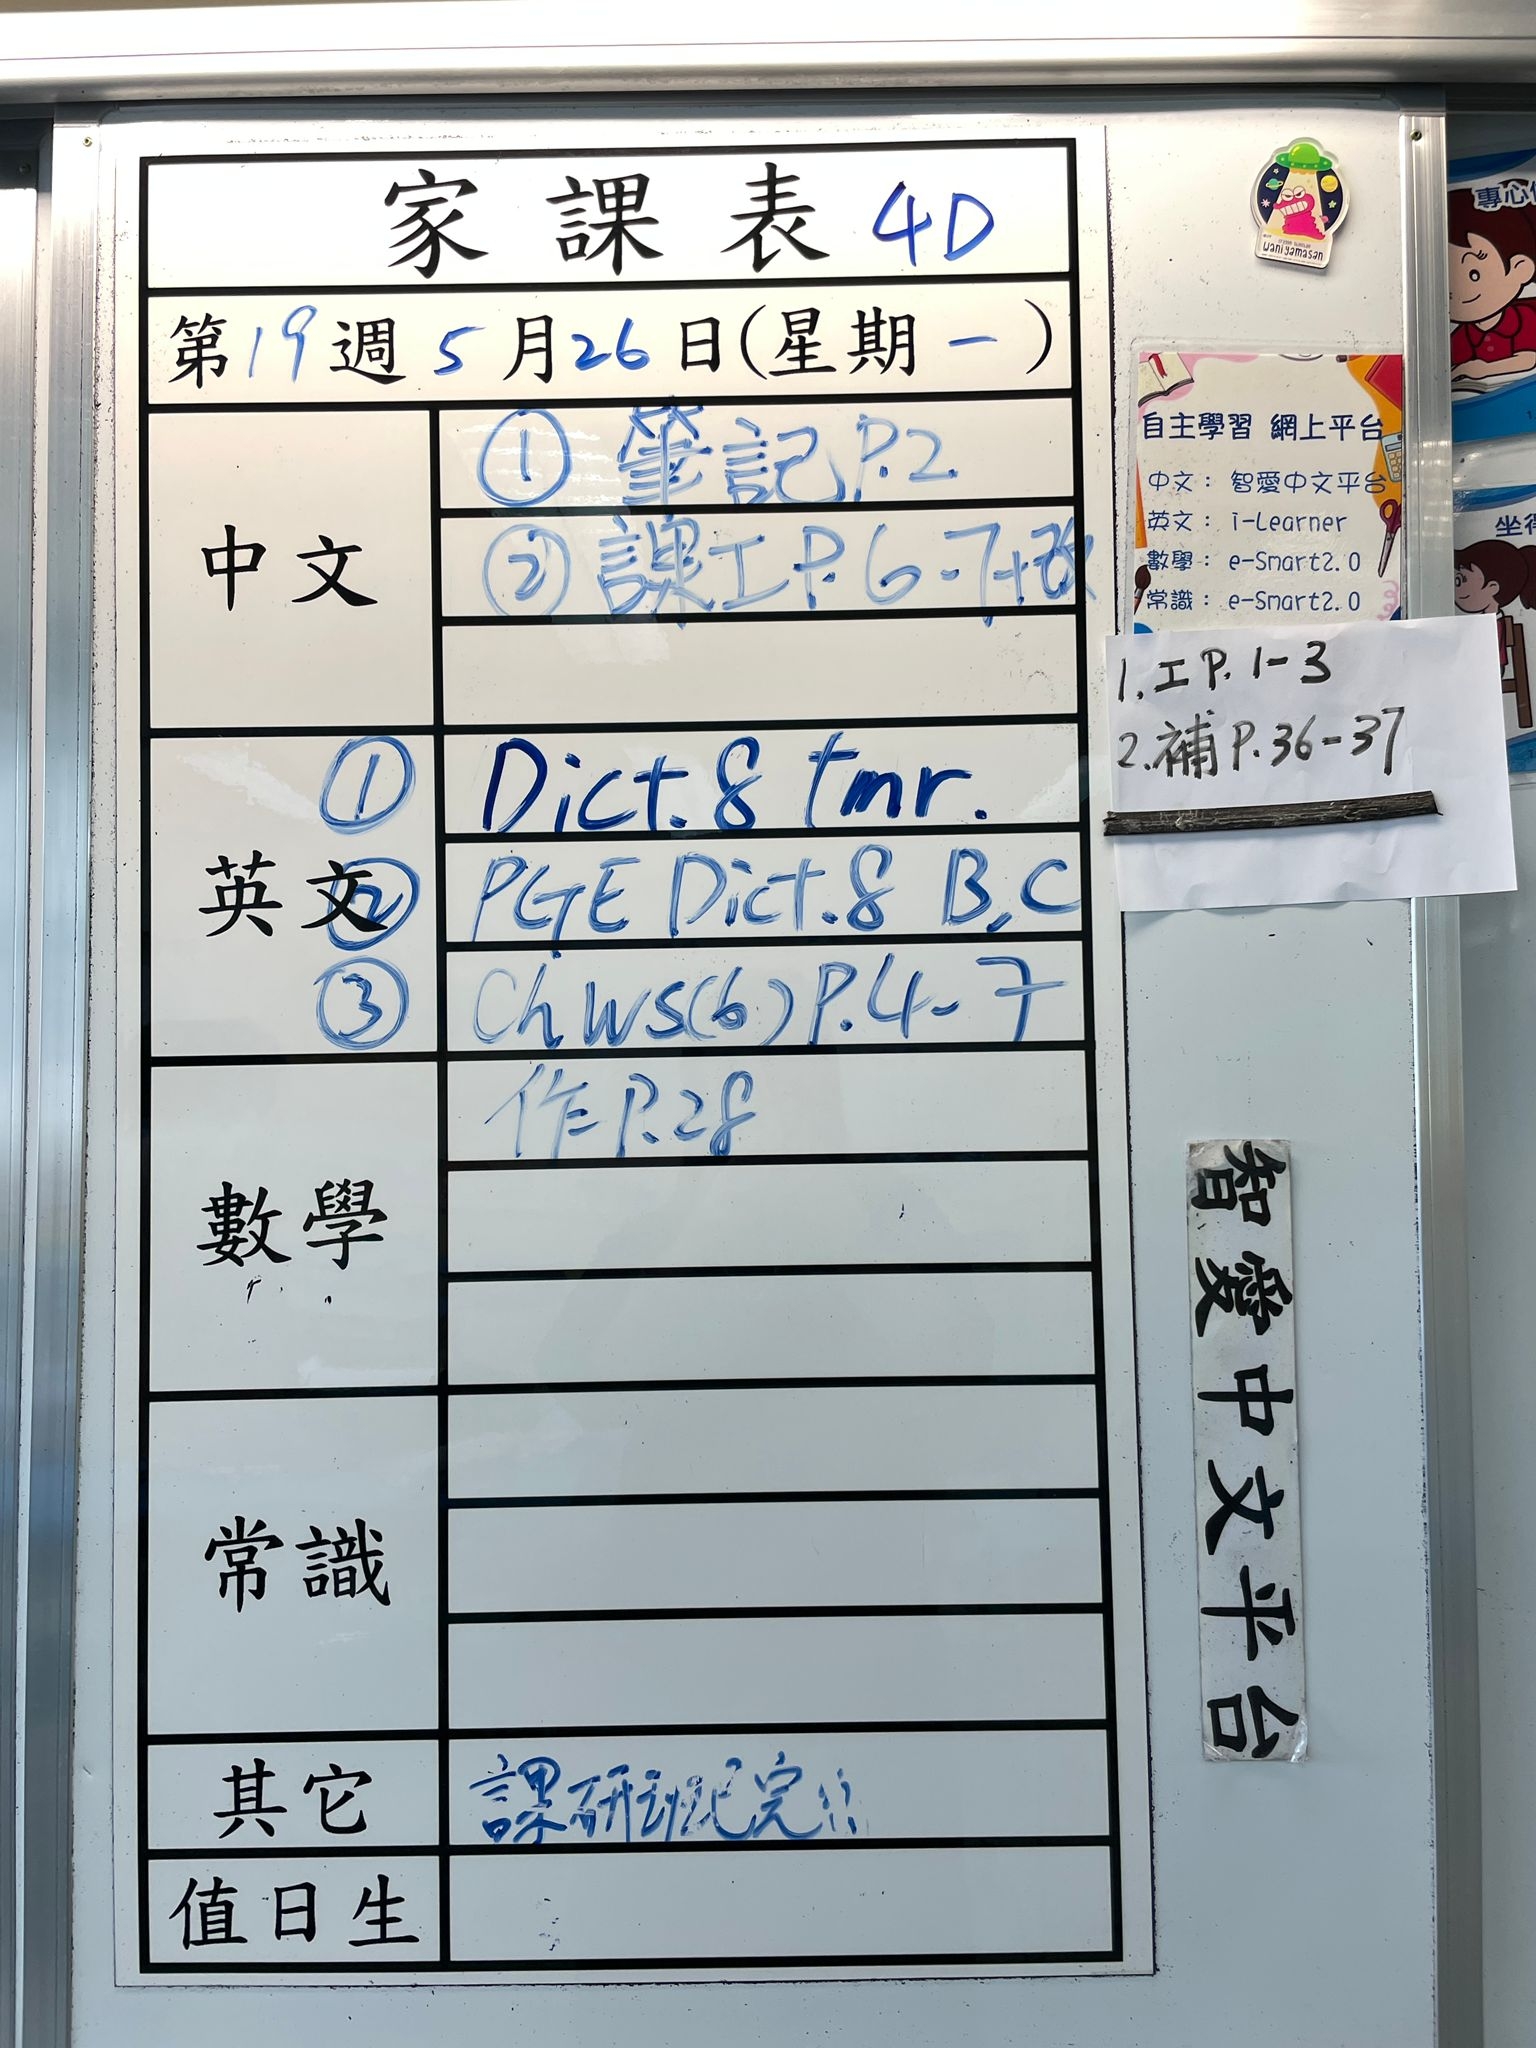 家課表 4D
第19週 5月26日(星期一)
中文
① 筆記 P.2.
② 課工 P.6-7+改
英文
① Dict.8 tmr.
② PGE Dict.8 B,C
③ Ch WS(6) P.4-7
數學
作 P.28
常識
其它
課研班已完!!
值日生
wani yamasan
自主學習 網上平台
中文：智愛中文平台
英文：i-Learner
數學：e-Smart2.0
常識：e-Smart2.0
1. 工 P. 1-3
2. 補 P. 36-37
智愛中文平台
專心
坐